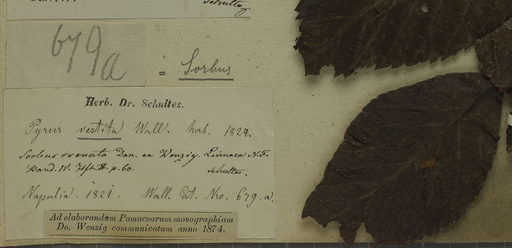 679a
= Sorbus
Herb. Dr. Schultes.
Pyrus vestita Wall. herb. 1824.
Sorbus crenata Don. ex Wenzig. Linnaea N.F.
Band. IV. Heft. p. 60. Schultes.
Napalia. 1821. Wall. Cat. Nro. 679. a.
Ad elaborandam Pomacearum monographiam
Do. Wenzig communicatum anno 1874.